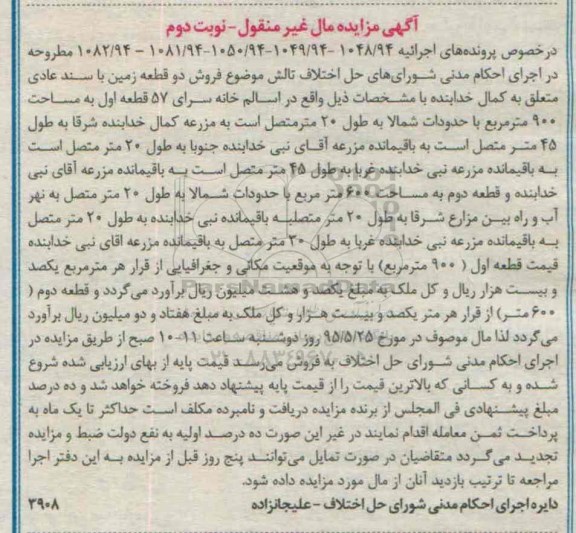 آگهی مزایده مال غیر منقول - نوبت دوم
درخصوص پرونده‌های اجرائیه ۱۰۴۸/۹۴ -۱۰۴۹/۹۴-۱۰۵۰/۹۴-۱۰۸۱/۹۴ – ۱۰۸۲/۹۴ مطروحه
در اجرای احکام مدنی شورای‌های حل اختلاف تالش موضوع فروش دو قطعه زمین با سند عادی
متعلق به کمال خدابنده با مشخصات ذیل واقع در اسالم خانه سرای ۵۷ قطعه اول به مساحت
۹۰۰ مترمربع با حدودات شمالا به طول ۲۰ مترمتصل است به مزرعه کمال خدابنده شرقا به طول
۴۵ متر متصل است به باقیمانده مزرعه آقای نبی خدابنده جنوبا به طول ۲۰ متر متصل است
به باقیمانده مزرعه نبی خدابنده غربا به طول ۴۵ متر متصل است به باقیمانده مزرعه آقای نبی
خدابنده و قطعه دوم به مساحت ۶۰۰ متر مربع با حدودات شمالا به طول ۲۰ متر متصل به نهر
آب و راه بین مزارع شرقا به طول ۲۰ متر متصلبه باقیمانده نبی خدابنده به طول ۲۰ متر متصل
به باقیمانده مزرعه نبی خدابنده غربا به طول ۳۰ متر متصل به باقیمانده مزرعه اقای نبی خدابنده
قیمت قطعه اول ( ۹۰۰ مترمربع) با توجه به موقعیت مکانی و جغرافیایی از قرار هر مترمربع یکصد
و بیست هزار ریال و کل ملک به مبلغ یکصد و هشت میلیون ریال برآورد می‌گردد و قطعه دوم (
۶۰۰ متر) از قرار هر متر یکصد و بیست هزار و کل ملک به مبلغ هفتاد و دو میلیون ریال برآورد
می‌گردد لذا مال موصوف در مورخ ۹۵/۵/۲۵ روز دوشنبه ساعت ۱۱-۱۰ صبح از طریق مزایده در
اجرای احکام مدنی شورای حل اختلاف به فروش می‌رسد قیمت پایه از بهای ارزیابی شده شروع
شده و به کسانی که بالاترین قیمت را از قیمت پایه پیشنهاد دهد فروخته خواهد شد و ده درصد
مبلغ پیشنهادی فی المجلس از برنده مزایده دریافت و نامبرده مکلف است حداکثر تا یک ماه به
پرداخت ثمن معامله اقدام نمایند در غیر این صورت ده درصد اولیه به نفع دولت ضبط و مزایده
تجدید می‌گردد متقاضیان در صورت تمایل می‌توانند پنج روز قبل از مزایده به این دفتر اجرا
مراجعه تا ترتیب بازدید آنان از مال مورد مزایده داده شود.
دایره اجرای احکام مدنی شورای حل اختلاف - علیجانزاده
۳۹۰۸